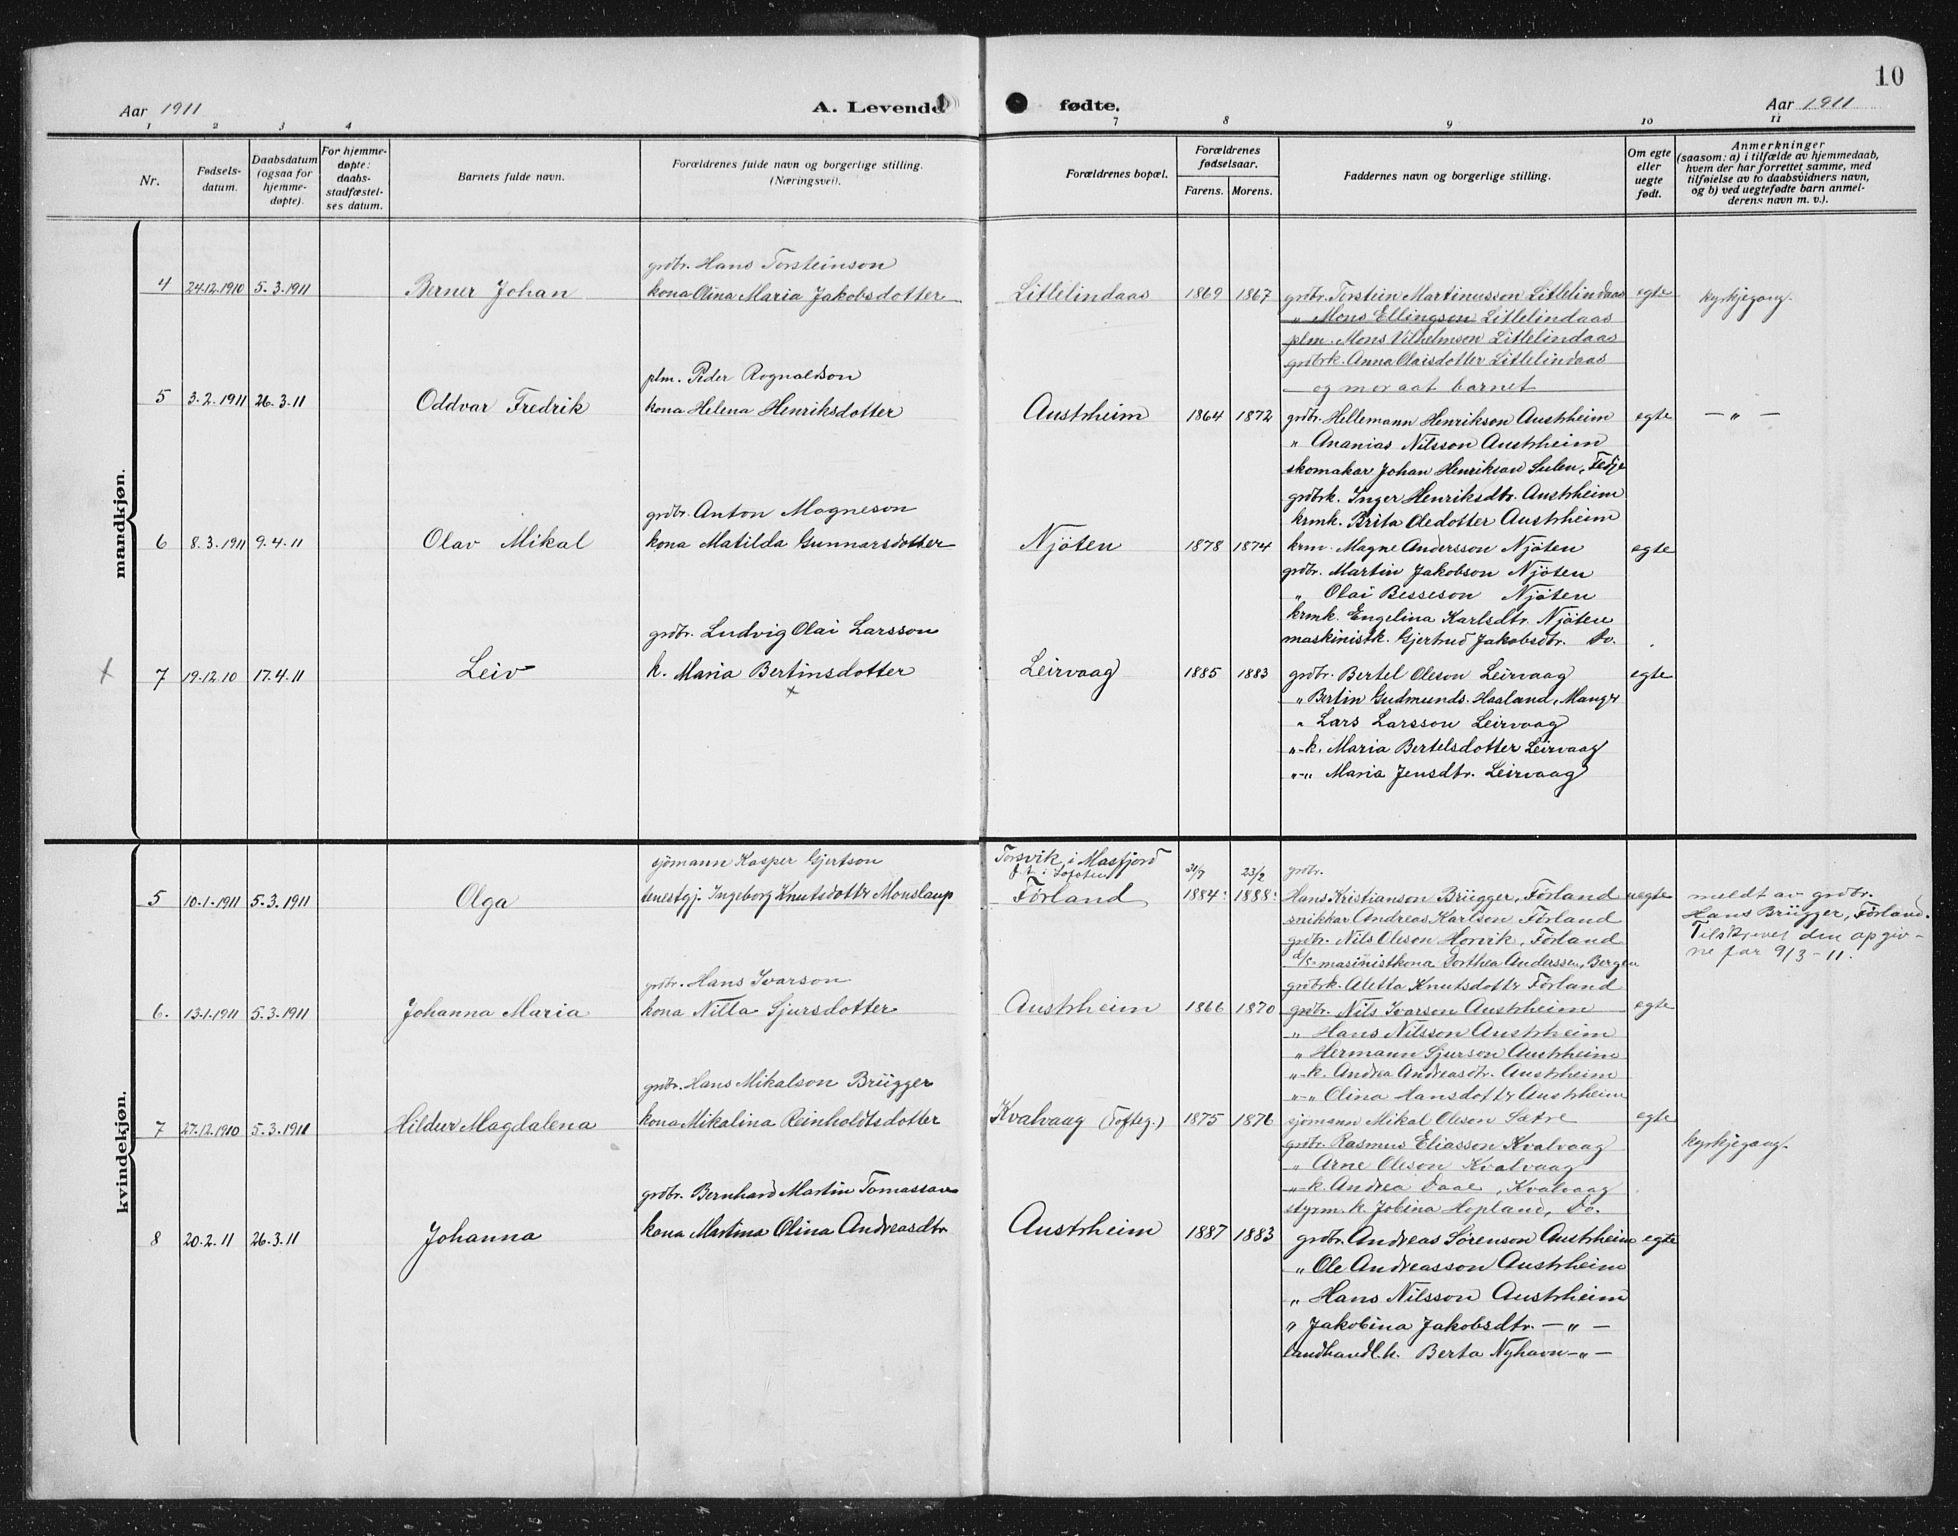 10
Aar 1911
A. Levende
fødte.
Aar 1911
1 2 3 4 7 8 9 10 11
Nr.
Fødsels-
datum.
Daabsdatum
(ogsaa for
hjemme-
døpte).
For hjemme-
døpte:
daabs-
stadfæstel-
ses datum.
Barnets fulde navn.
Forældrenes fulde navn og borgerlige stilling.
(Næringsvei).
Forældrenes bopæl.
Forældrenes
fødselsaar.
Farens. Morens.
Faddernes navn og borgerlige stilling.
Om egte
eller
uegte
født.
Anmerkninger
(saasom: a) i tilfælde av hjemmedaab,
hvem der har forrettet samme, med
tilføielse av to daabsvidners navn,
og b) ved uegtefødte barn anmel-
derens navn m. v.).
mandkjøn.
grdbr. Hans Torsteinson
4 24.12.1910 5.3.1911 Berner Johan kona Olina Maria Jakobsdotter Litlelindaas 1869 1867 grdbr. Torstein Martinusson Litlelindaas egte kyrkjegang.
" Mons Ellingson Litlelindaas
plm. Mons Vilhelmson Litlelindaas
grdbrk. Anna Olaisdotter Litlelindaas
og mor aat barnet
plm. Peder Rognaldson
5 3.2.1911 26.3.11 Oddvar Fredrik kona Helena Henriksdotter Austrheim 1864 1872 grdbr. Hellemann Henrikson Austrheim egte — " —
" Ananias Nilsson Austrheim
skomakar Johan Henrikson Sulen, Fedje
grdbrk. Inger Henriksdtr. Austrheim
krmk. Brita Oledotter Austrheim
grdbr. Anton Magneson
6 8.3.1911 9.4.11 Olav Mikal kona Matilda Gunnarsdotter Njöten 1878 1874 krm. Magne Andersson Njöten egte
grdbr. Martin Jakobson Njöten
" Olai Besseson Njöten
krmk. Engelina Karlsdtr. Njöten
maskinistk. Gjertrud Jakobsdtr. Do.
grdbr. Ludvig Olai Larsson
x 7 19.12.10 17.4.11 Leiv k. Maria Bertinsdotter Leirvaag 1885 1883 grdbr. Bertel Oleson Leirvaag egte
x
" Bertin Gudmunds. Haaland, Manger
" Lars Larsson Leirvaag
"-k. Maria Bertelsdotter Leirvaag
"-" Maria Jensdtr. Leirvaag
kvindekjøn.
sjömann Kasper Gjertson Torsvik i Masfjord 31/7 23/2 grdbr.
f.t. i Lofoten
5 10.1.1911 5.3.1911 Olga tenestgj. Ingeborg Knutsdottr Monslaup Förland 1884: 1888: Hans Kristianson Brügger, Förland uegte meldt av grdbr.
snikkar Andreas Karlson Förland Hans Brügger, Förland.
grdbr. Nils Oleson Horvik, Förland Tilskrevet den opgiv-
d/s masinistkona Dorthea Anderssen, Bergen ne far 9/3-11.
grdbrk. Aletta Knutsdottr Förland
grdbr. Hans Ivarson
6. 13.1.1911 5.3.1911 Johanna Maria kona Nilla Sjursdotter Austrheim 1866 1870 grdbr. Nils Ivarson Austrheim egte
" Hans Nilsson Austrheim
" Hermann Sjurson Austrheim
"-k. Andrea Andreasdtr. Austrheim
"-" Olina Hansdottr Austrheim
grdbr. Hans Mikalson Brügger
7 27.12.1910 5.3.1911 Hildur Magdalena kona Mikalina Reinholdtsdotter Kvalvaag (Tofteg.) 1875 1876 sjömann Mikal Oleson Sætre egte
grdbr. Rasmus Eliasson Kvalvaag kyrkjegang.
" Arne Oleson Kvalvaag
"-k. Andrea Daae, Kvalvaag
styrm.k. Jobina Hopland, Do.
grdbr. Bernhard Martin Tomasson
8 20.2.11 26.3.11 Johanna kona Martina Olina Andreasdtr. Austrheim 1887 1883 grdbr. Andreas Sörenson Austrheim egte
" Ole Andreasson Austrheim
" Hans Nilsson Austrheim
" Jakobina Jakobsdtr. — " —
landhandl.k. Berta Nyhavn — " —